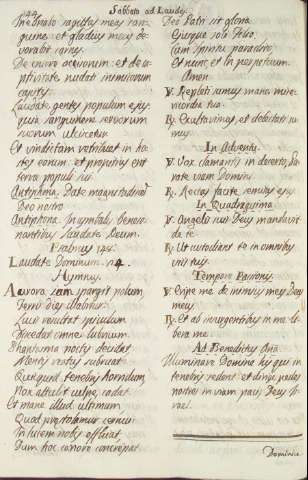 Sabbato ad Laudes.
Inebriabo sagittas meas san-
guine, et gladius meus de-
vorabit carnes.
De cruore occisorum et de ca-
ptivitate nudati inimicorum
capitis.
Laudate gentes populum ejus
quia sanguinem servorum
suorum ulciscetur
Et vindictam retribuet in ho-
stes eorum et propitius erit
terræ populi sui.
Antiphona. Date magnitudinem
Deo nostro
Antiphona. In cymbalis beneso-
nantibus laudate Deum.
Psalmus
Laudate Dominum
Hymnus.
Aurora jam spargit polum
Terris dies illabitur
Lucis resultat spiculum
Discedat omne lubricum.
Phantasma noctis decidat
Mentis reatus subruat
Quidquid tenebris horridum,
Nox attulit culpæ, cadat.
Et mane illud ultimum,
Quod præstolamur cernui
In lucem nobis effluat,
Dum hoc canore concrepat.
Deo Patri sit gloria
Ejusque soli Filio,
Cum Spiritu paraclito,
Et nunc, et in perpetuum.
Amen.
V. Repleti sumus mane mise-
ricordia tua.
R. Exultavimus, et delectati su-
mus.
In Adventu.
V. Vox clamantis in deserto, pa-
rate viam Domini
R. Rectas facite semitas ejus
In Quadragesima.
V. Angelis suis Deus mandavit
de te.
R. Ut custodiant te in omnibus
viis tuis
Tempore Passionis.
V. Eripe me de inimicis meis Deus
meus
R. Et ab insurgentibus in me li-
bera me.
Ad Benedictus Aña
Illuminare Domine his qui in
tenebris sedent et dirige pedes
nostros in viam pacis Deus
Dominica